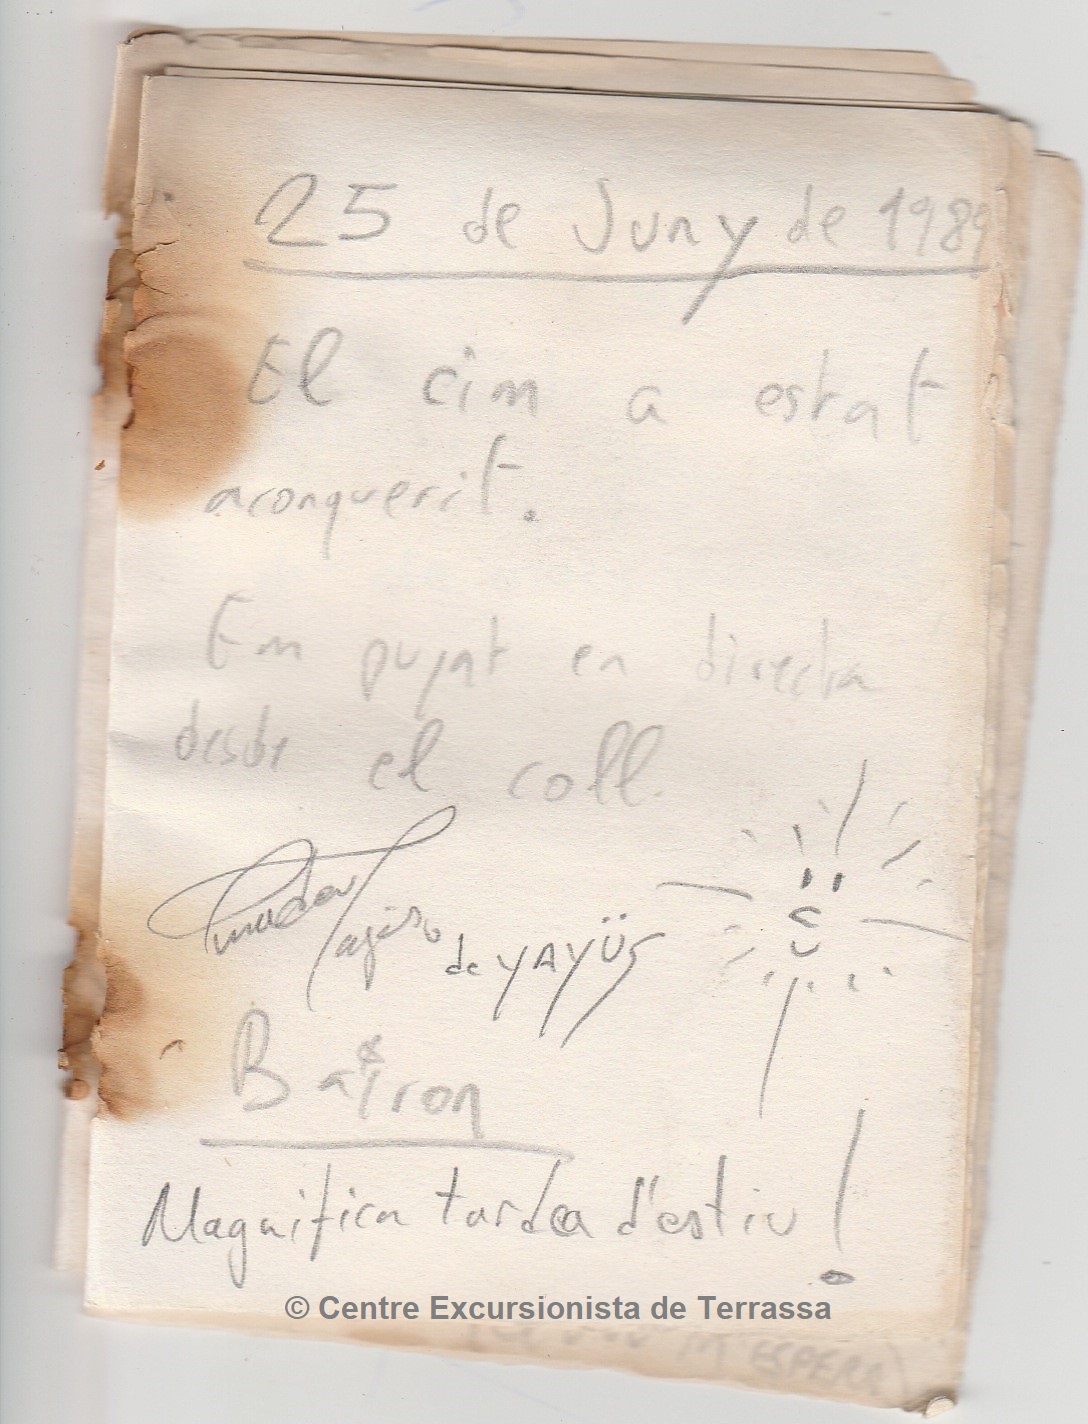 25 de Juny de 1989
El cim a estat
aconquerit.
Em pujat en directa
desde el coll.
de YAYÜS
Bairon
Magnifica tardea d'estiu!
© Centre Excursionista de Terrassa
M'ESPERE)